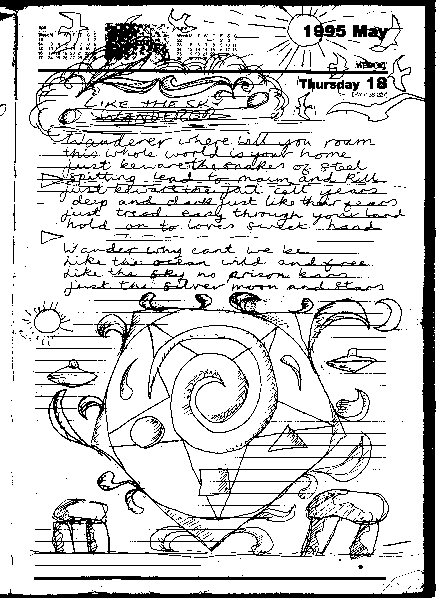 1995 May
Thursday 18
LIKE THE SKY
WANDERER
Wanderer where will you roam
this whole world is your home
just beware the snakes of steel
spitting lead to maim and kill
just beware the jail cell years
deep and dark just like their fears
just tread easy through your land
hold on to loves sweet hand
Wander why cant we be
Like the ocean wild and free
Like the sky no prison bars
just the silver moon and stars